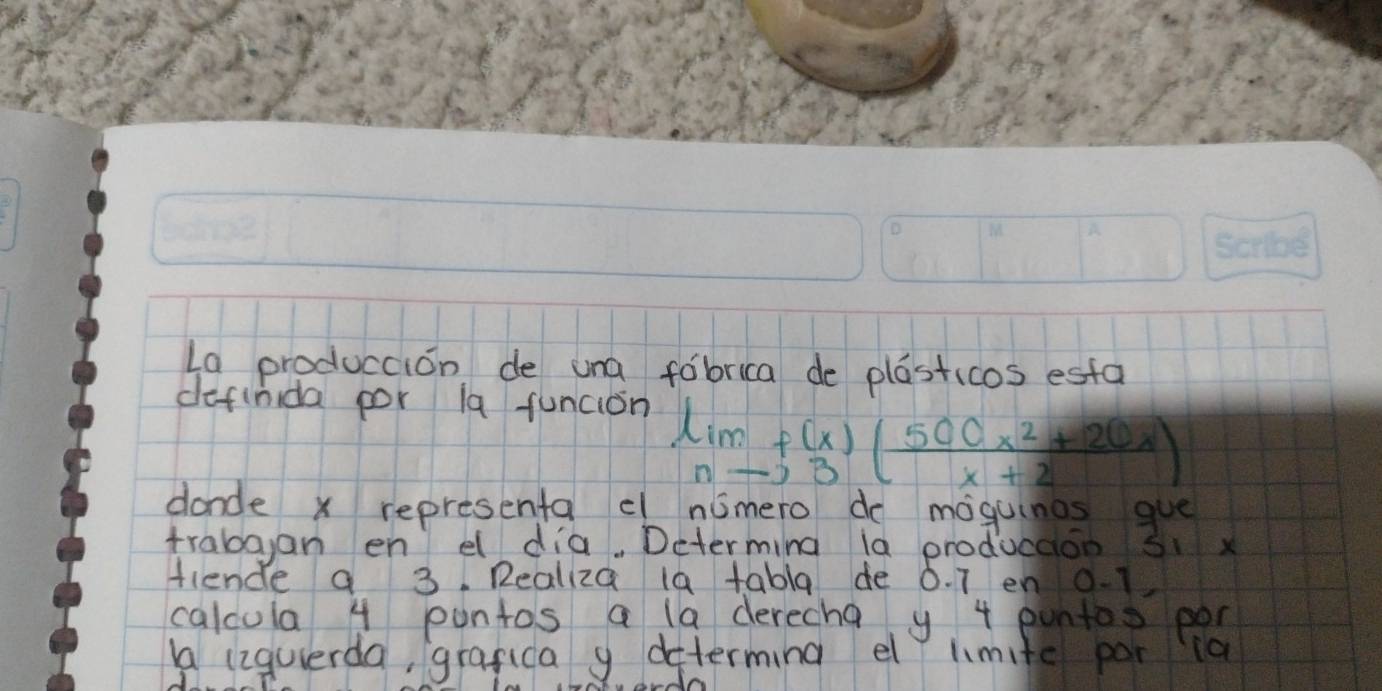 D M A
Scribe
La producción de una fábrica de plásticos esta
definida por la función
lim f(x) (500x² + 20x)
n → 3 x + 2
donde x representa el número de máquinas que
trabajan en el día. Determina la producción si x
tiende a 3. Realiza la tabla de 0.1 en 0.1,
calcula 4 puntos a la derecha y 4 puntos por
la izquierda, grafica y determina el limite por la